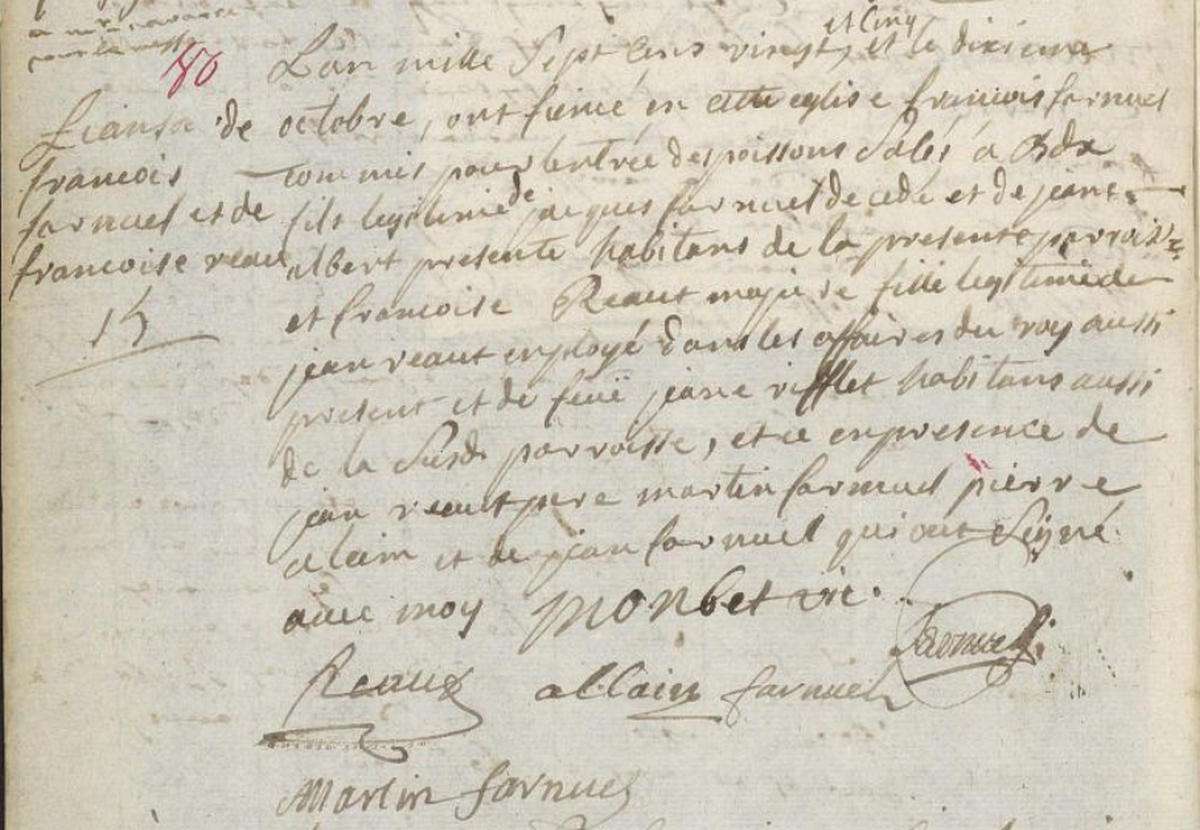 80
Lian̄ca de
francois
farnuel et de
francoise reaut
15
L'an mille Sept Cens vingt, et Cinq et le dixieme
octobre, ont fiencé en cette eglise francois farnuel
commis pour l'entrée des poissons Salés a Bdx
fils legitime de jacques farnuel decedé et de jeane
albert presente habitans de la presente parroisse
et francoise Reaut majure fille legitime de
jean reaut employé dans les affaires du roy aussi
present et de feüe jeane rifflet habitans aussi
de la Susd. parroisse, et ce en presence de
jean reaut pere martin farnuel pierre
alain et de jean farnuel qui ont Signé
avec moy Monbet vic.
farnuel
Reaux allain farnuel
Martin farnuel